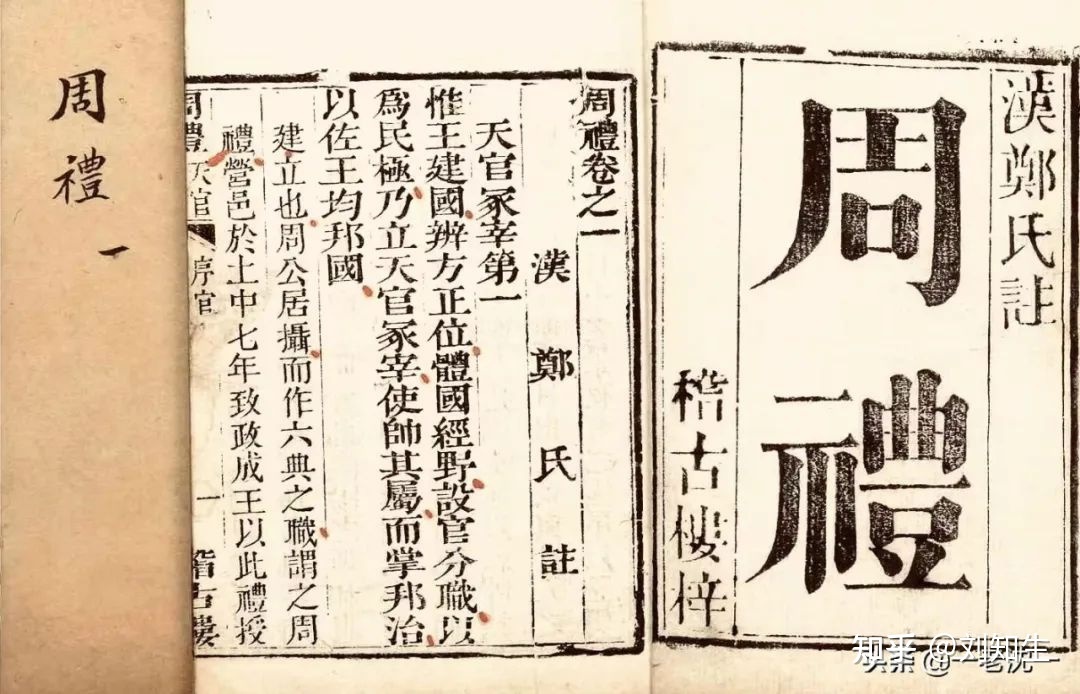 漢鄭氏註
周禮
稽古樓梓
周禮卷之一
漢鄭氏註
天官冢宰第一
惟王建國辨方正位體國經野設官分職以
爲民極乃立天官冢宰使帥其屬而掌邦治
以佐王均邦國
建立也周公居攝而作六典之職謂之周
禮營邑於土中七年致政成王以此禮授
周禮天官 序官 一 稽古樓
周禮 一
知乎 @刘知生